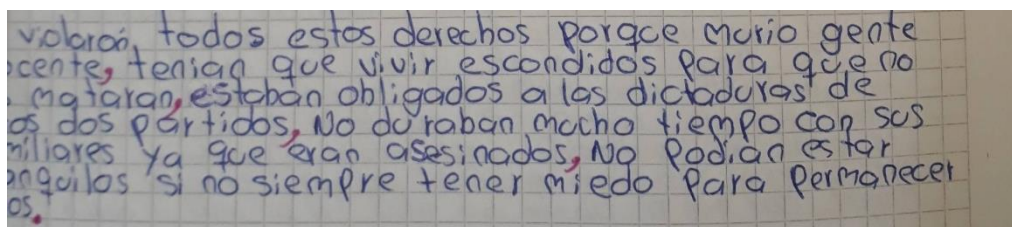 violaron, todos estos derechos porqce murio gente
ocente, tenian que vivir escondidos para que no
mataran, estaban obligados a las dictaduras de
os dos partidos, No duraban mucho tiempo con sus
miliares ya que eran asesinados, No Podian estar
anquilos si no siempre tener miedo Para Permanecer
os.